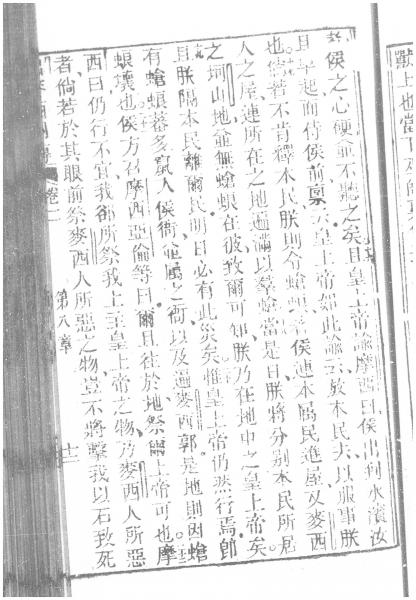 侯之心硬僉不聽之矣且皇上帝諭摩西曰侯出到水濱汝
且早起而侍侯前稟云皇上帝如此諭云放本民去以服事朕
也倘若不肯釋本民朕則令螥蜋侯連本屬民進屋及麥西
人之屋連所在之地遍滿以羣螥當是日朕將分別本民所居
之坷山地並無螥蜋在彼致爾可知朕乃在地中之皇上帝矣
且朕隔本民離爾民明日必有此災矣惟皇上帝仍然行焉卽
有螥蜋蕃多竄入侯衙並屬之衙以及遍麥西郭是地則因螥
蜋壞也侯方召摩西亞倫等曰爾且往於地祭爾上帝可也摩
西曰仍行不宜我卻所祭我上至皇上帝之物乃麥西人所惡
者倘若於其眼前祭麥西人所惡之物豈不將擊我以石致死
卷二 第八章